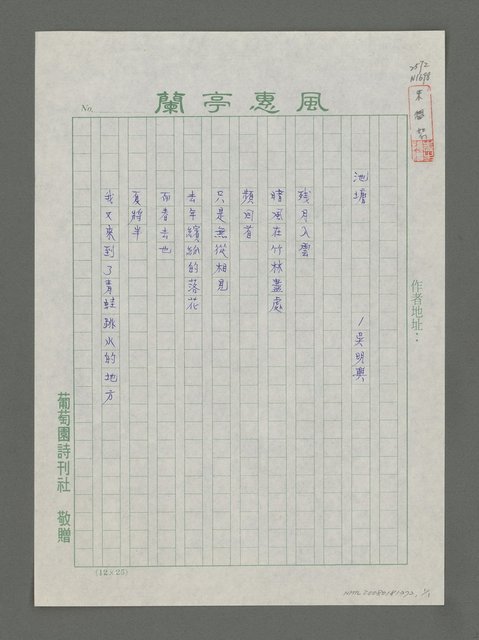 2572
N1698
No.
風惠亭蘭
作者地址：
池塘 /吳明興
殘月入雲
晴風在竹林盡處
頻回首
只是無從相見
去年繽紛的落花
而春去也
夏將半
我又來到了青蛙跳水的地方
葡萄園詩刊社 敬贈
(12×25)
NMTL20080181072, 1/1